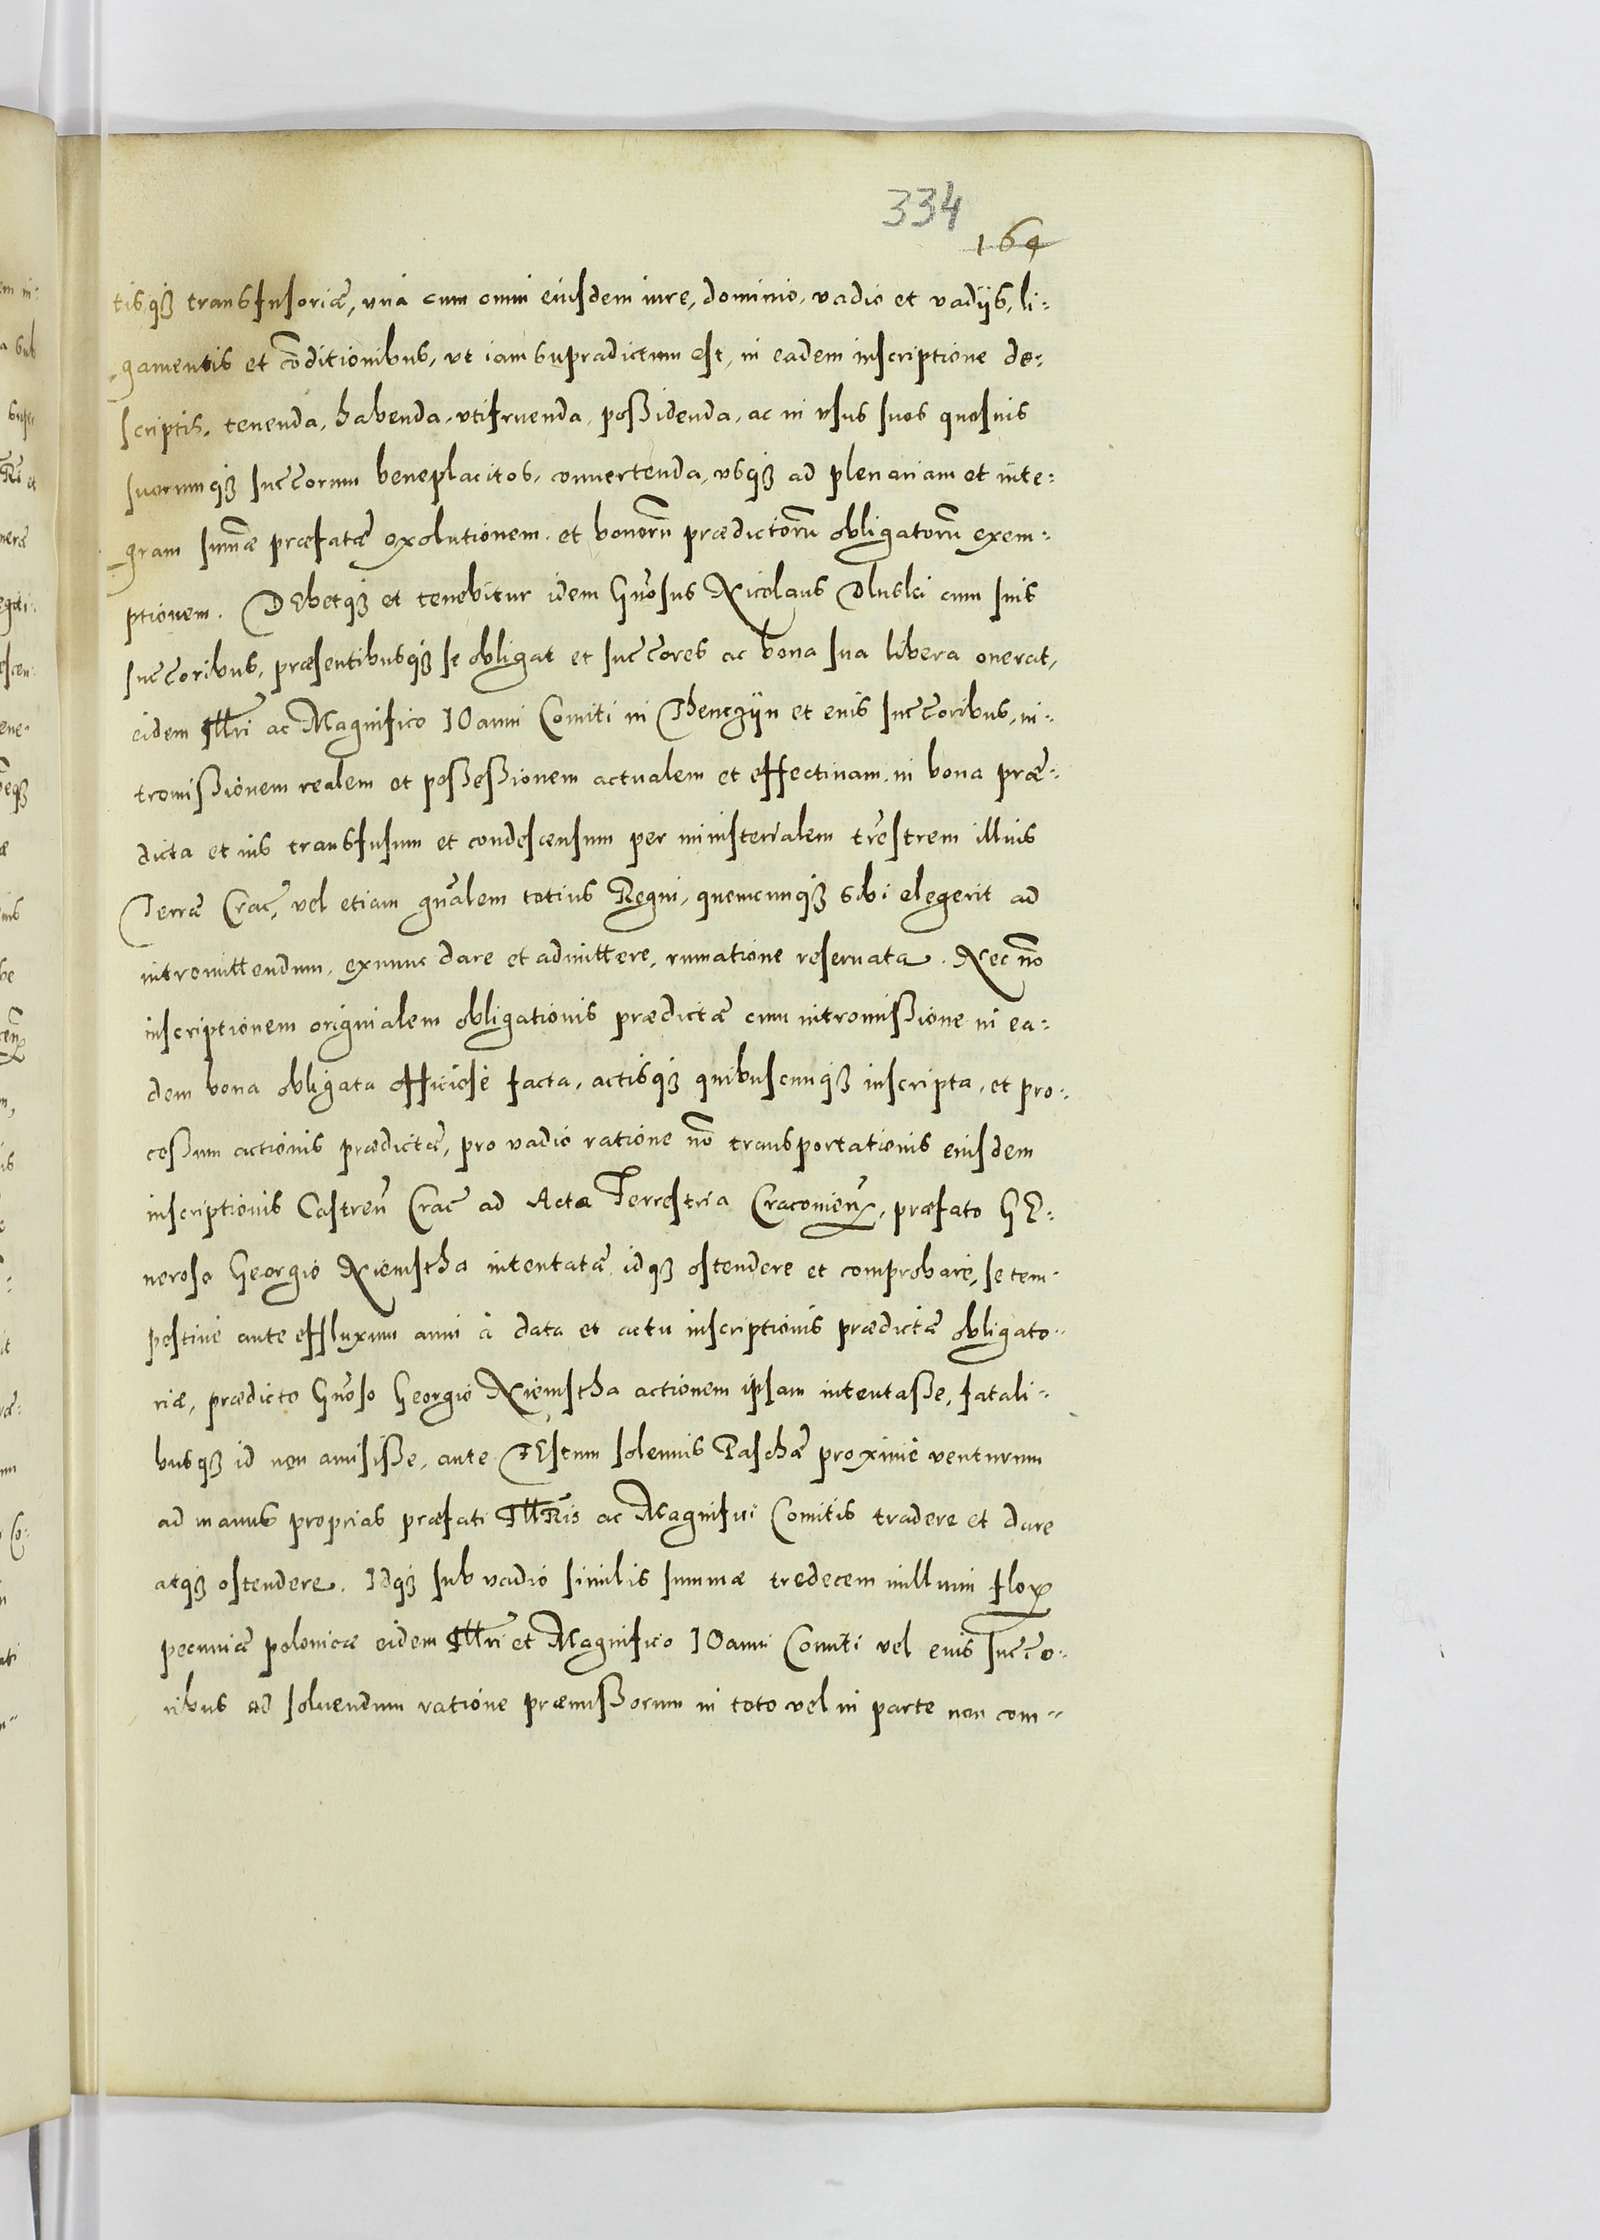 334
164
tisq3 transfusoriæ, vna cum omni eiusdem iure, dominio, vadio et vadijs, li-
gamentis et cōditionibus, vt iam supradictum est, in eadem inscriptione de-
scriptis, tenenda, habenda, vtifruenda, possidenda, ac in vsus suos quosuis
suorumq3 succ̄orum beneplacitos, conuertenda, vsq3 ad plenariam et inte-
gram sum̄æ præfatæ exolutionem, et bonorū prædictorū obligatorū exem-
ptionem. DEbetq3 et tenebitur idem Gn̄osus Nicolaus Dluski cum suis
succ̄oribus, præsentibusq3 se obligat et succ̄ores ac bona sua libera onerat,
eidem Ill̄ri ac Magnifico IOanni Comiti in Thenczÿn et eius succ̄oribus, in-
tromissionem realem et possessionem actualem et effectiuam, in bona præ-
dicta et ius transfusum et condescensum per ministerialem tr̄estrem illius
Terræ Crac̄, vel etiam gn̄alem totius Regni, quemcunq3 sibi elegerit ad
intromittendum, exnunc dare et admittere, rumatione reseruata. Nec nō
inscriptionem originialem obligationis prædictæ cum intromissione in ea-
dem bona obligata officiosè facta, actisq3 quibuscunq3 inscripta, et pro-
cessum actionis prædictæ, pro vadio ratione nō transportationis eiusdem
inscriptionis Castren̄ Crac̄ ad Acta Terrestria Cracouien̄, præfato GE-
neroso Georgio Niemstha intentatæ idq3 ostendere et comprobare, se tem-
pestiuè ante effluxum anni à data et actu inscriptionis prædictæ obligato-
riæ, prædicto Gn̄oso Georgio Niemstha actionem ipsam intentasse, fatali-
busq3 id non amisisse, ante FEstum solennis Paschæ proximè venturum
ad manus proprias præfati Ill̄ris ac Magnifici Comitis tradere et dare
atq3 ostendere. Idq3 sub vadio similis summæ tredecem millium flor̄
pecuniæ polonicæ eidem Ill̄ri et Magnifico IOanni Comiti vel eius succ̄o-
ribus ad soluendum ratione præmissorum in toto vel in parte non com-